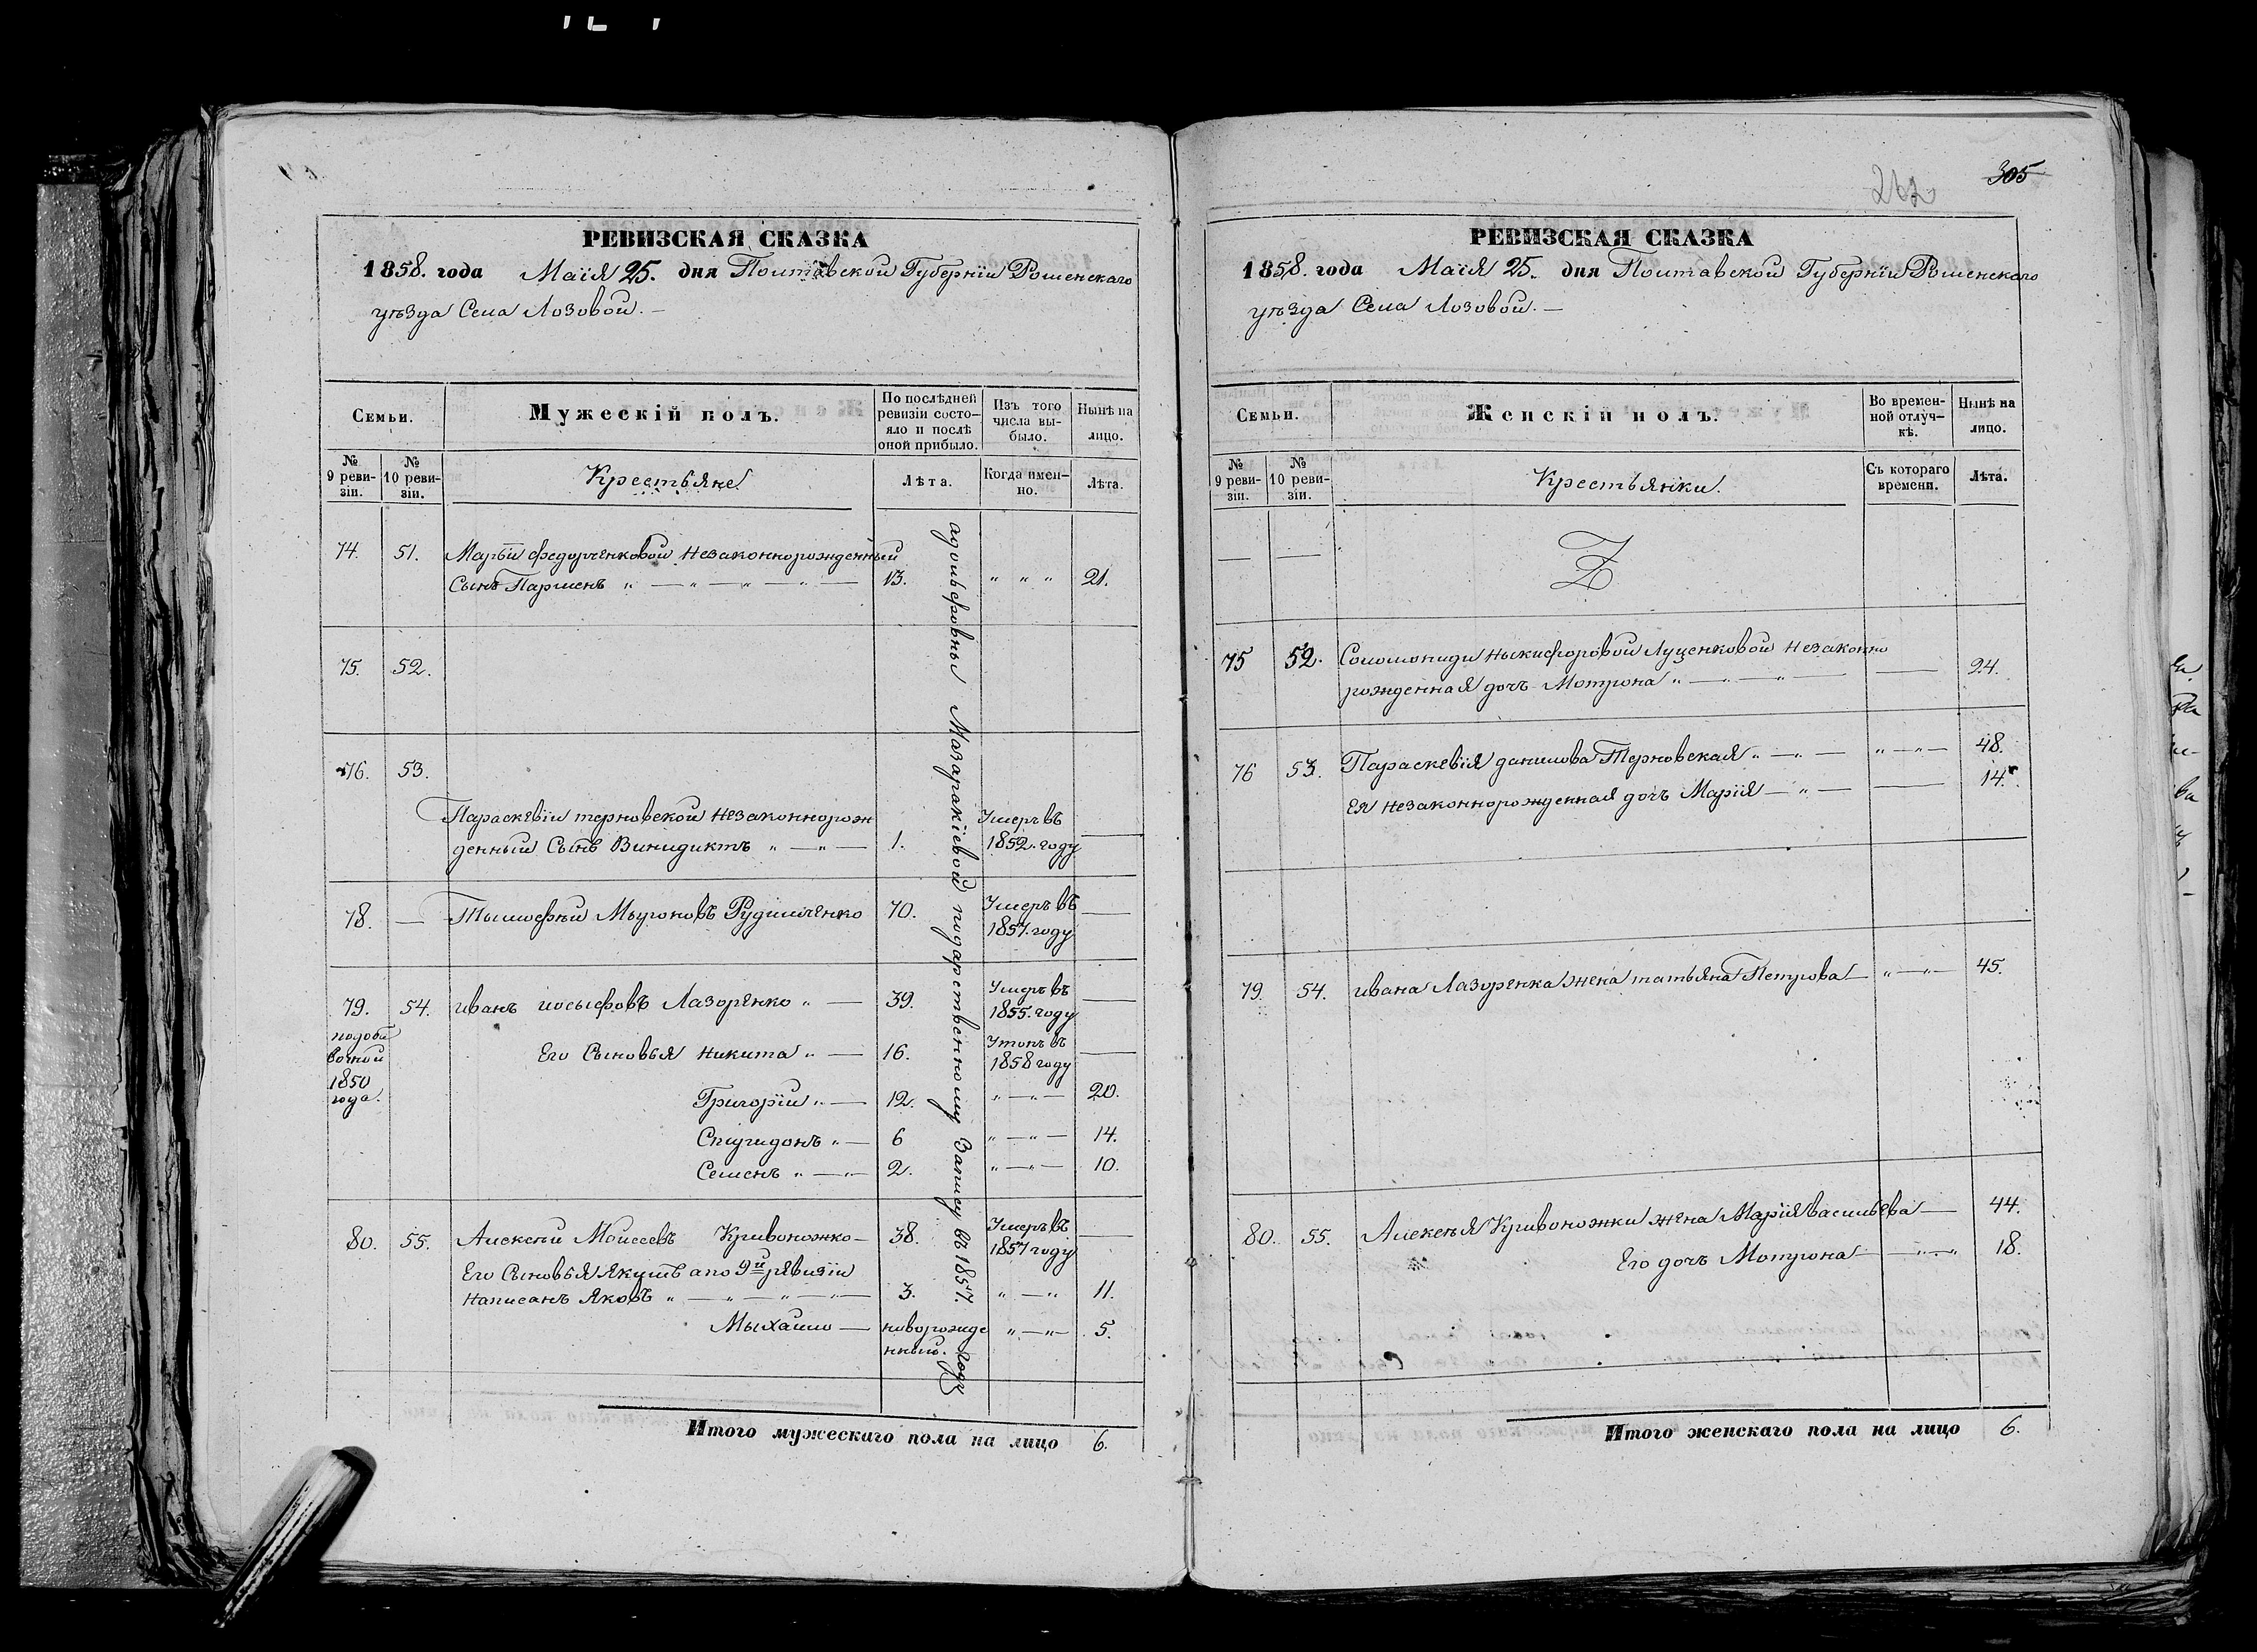 РЕВИЗСКАЯ СКАЗКА
1858. года Маія 25. дня Полтавской Губерніи Роменскаго
уѣзда Села Лозовой. —
Семьи.
Мужескій полъ.
По послѣдней ревизіи состо-
яло и послѣ
оной прибыло.
Изъ того
числа вы-
было.
Нынѣ на
лицо.
№
9 реви-
зіи.
№
10 реви-
зіи.
Крестьяне
Лѣта.
Когда имен-
но.
Лѣта.
74. 51. Марѳи Федорченковой незаконнорожденный
Сынъ Парменъ " — " — " — " — 13. " " " 21.
75. 52.
76. 53.
Параскевіи терновской незаконнорож
денный Сынъ Винидиктъ " — " — 1. Умеръ въ
1852. году —
78. — Тымофѣй Мыроновъ Рудыченко 70. Умеръ въ
1857. году —
79. 54. иванъ иосыфовъ Лазоренко " — 39. Умеръ въ
1855. году —
подоба
вочной
1850
года.
Его Сыновья Никита " — 16. Утопъ въ
1858 году —
Григорій " — 12. " — " — 20.
Спиридонъ " — 6 " — " — 14.
Семенъ " — " — 2. " — " — 10.
80. 55. Алексѣй Моисеевъ Кривоножко — 38. Умеръ въ
1857 году —
Его Сыновья Якушъ а по 9й ревизіи
написанъ Яковъ " — " — " — " — 3. " — " 11.
Мыхайло — новорожде
нный. " — " — 5.
адольфовны Мазаракіевой подарственному Запису въ 1857.
году
Итого мужескаго пола на лицо 6.
262
305
РЕВИЗСКАЯ СКАЗКА
1858. года Маія 25. дня Полтавской Губерніи Роменскаго
уѣзда Села Лозовой. —
Семьи.
Женскій полъ.
Во времен-
ной отлуч-
кѣ.
Нынѣ на
лицо.
№
9 реви-
зіи.
№
10 реви-
зіи.
Крестьянки.
Съ котораго
времени.
Лѣта.
— — Z
75 52. Соломониди Ныкифоровой Луценковой Незаконно
рожденная дочь Мотрона " — " — " — — 24.
76 53. Параскевія данилова Терновская " — " — " — " — 48.
Ея незаконнорожденная дочь Марія — " — — 14.
79. 54. ивана Лазоренка жена татьяна Петрова — " — " — 45.
80. 55. Алексѣя Кривоножки жена Марія васильева — 44.
Его дочь Мотрона — " — " 18.
Итого женскаго пола на лицо 6.